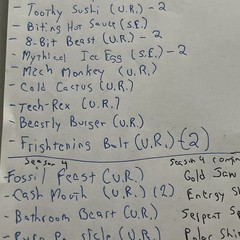 - Toothy Sushi (U.R.) - 2
- Biting Hot Sauce (S.E.)
- 8-Bit Beast (U.R.) - 2
- Mythical Ice Egg (S.E.) - 2
- Mech Monkey (U.R.)
- Cold Cactus (U.R.)
- Tech-Rex (U.R.)
- Beastly Burger (U.R.)
- Frightening Bolt (U.R.) (2)
Season 4 Season 4
Fossil Feast (U.R.) Gold Jaw
- Cash Mouth (U.R.) (2) Energy
- Bathroom Beast (U.R.) Serpent
(U.R.) Polar